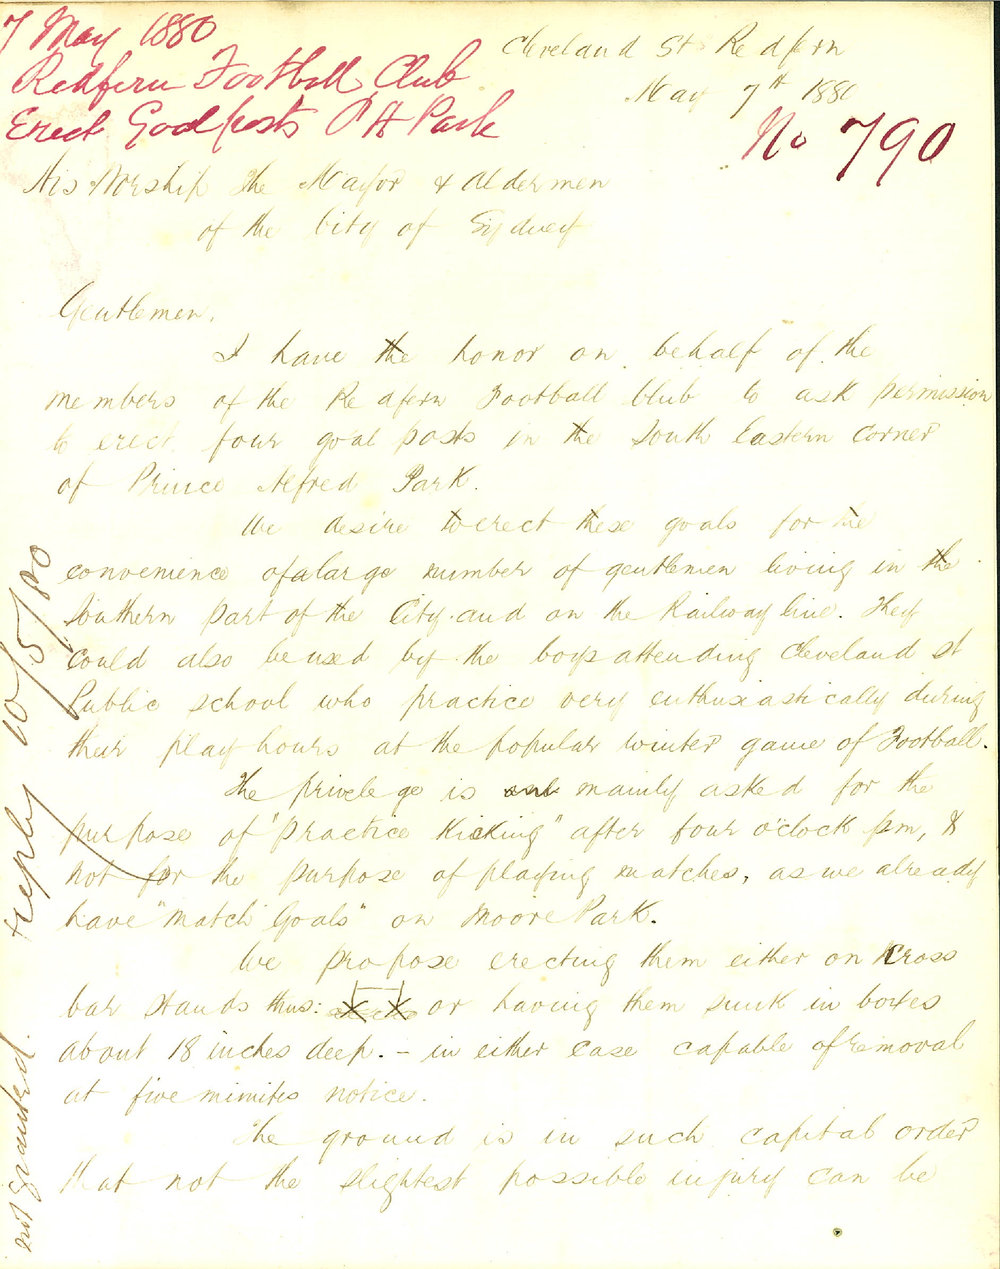 7 May 1880
Redfern Football Club
Erect Goal posts P A Park
Cleveland St Redfern
May 7th 1880
No 790
His Worship The Mayor & Aldermen
of the City of Sydney
Gentlemen,
I have the honor on behalf of the
members of the Redfern Football Club to ask permission
to erect four goal posts in the South Eastern corner
of Prince Alfred Park.
We desire to erect these goals for the
convenience of a large number of gentlemen living in the
Southern part of the City and on the Railway line. They
could also be used by the boys attending Cleveland St
Public School who practice very enthusiastically during
their play hours at the popular winter game of Football.
The privelege is mainly asked for the
purpose of "practice kicking" after four o'clock pm, &
not for the purpose of playing matches, as we already
have "Match Goals" on Moore Park.
We propose erecting them either on Cross
bar stands thus: or having them sunk in boxes
about 18 inches deep. – in either case capable of removal
at five minites notice.
The ground is in such capital order
that not the slightest possible injury can be
not granted. reply 10/5/80